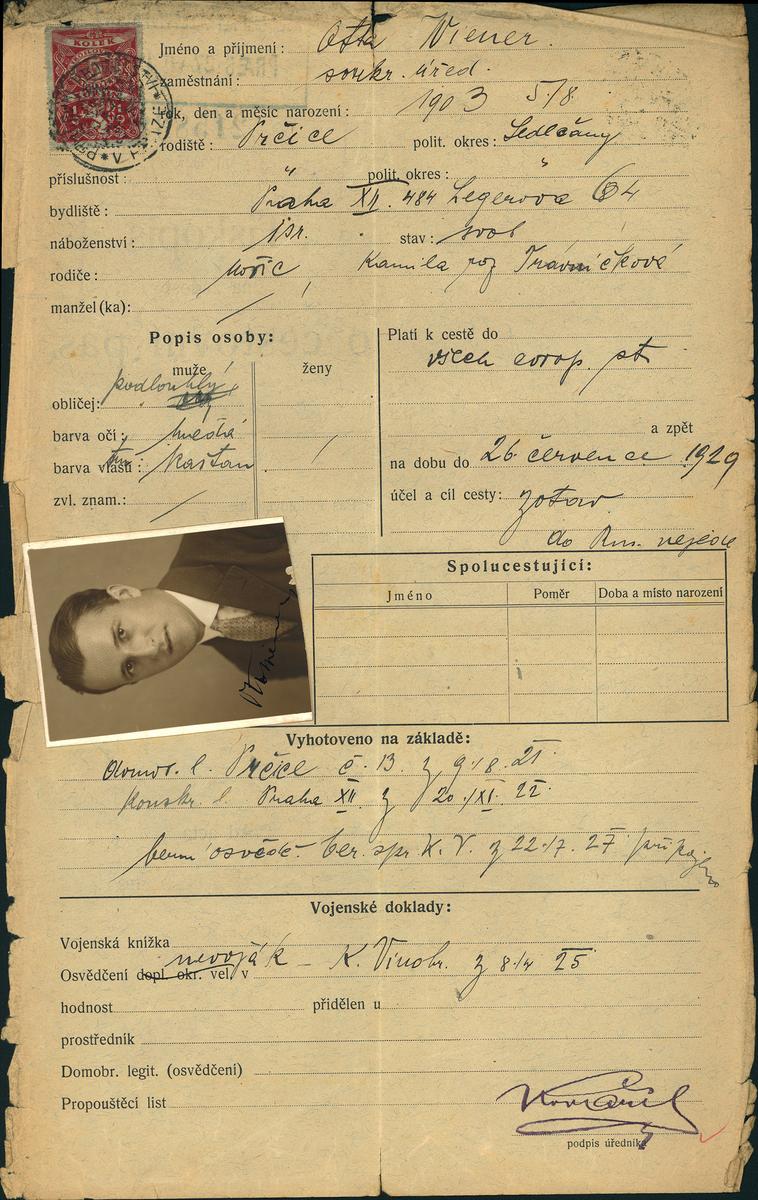 KOLEK
Jméno a příjmení: Otta Wiener.
zaměstnání: soukr. úřed.
rok, den a měsíc narození: 1903 5/8
rodiště: Prčice polit. okres: Sedlčany
příslušnost: " polit. okres: "
bydliště: Praha XII. 484 Legerova 64
náboženství: isr. stav: svob
rodiče: Mořic Kamila roz Trávníčková
manžel (ka): /
Popis osoby:
muže ženy
obličej: podlouhlý
barva očí: hnědá
barva vlasů: tm kaštan /
zvl. znam.: /
Platí k cestě do
všech evrop. st
a zpět
na dobu do 26 července 1929
účel a cíl cesty: zotav
do Rus. nejede
Spolucestující:
Jméno Poměr Doba a místo narození
Vyhotoveno na základě:
domov. l. Prčice č. 13. z 9./8. 21.
konskr. l. Praha XII z 20./XI. 22
bern osvědč. ber. spr. K. V. z 22./7. 27
Vojenské doklady:
Vojenská knížka
nevoják – K. Vinohr. z 8./4 25
Osvědčení dopl. okr. vel. v
hodnost přidělen u
prostředník
Domobr. legit. (osvědčení)
Propouštěcí list
podpis úředníka